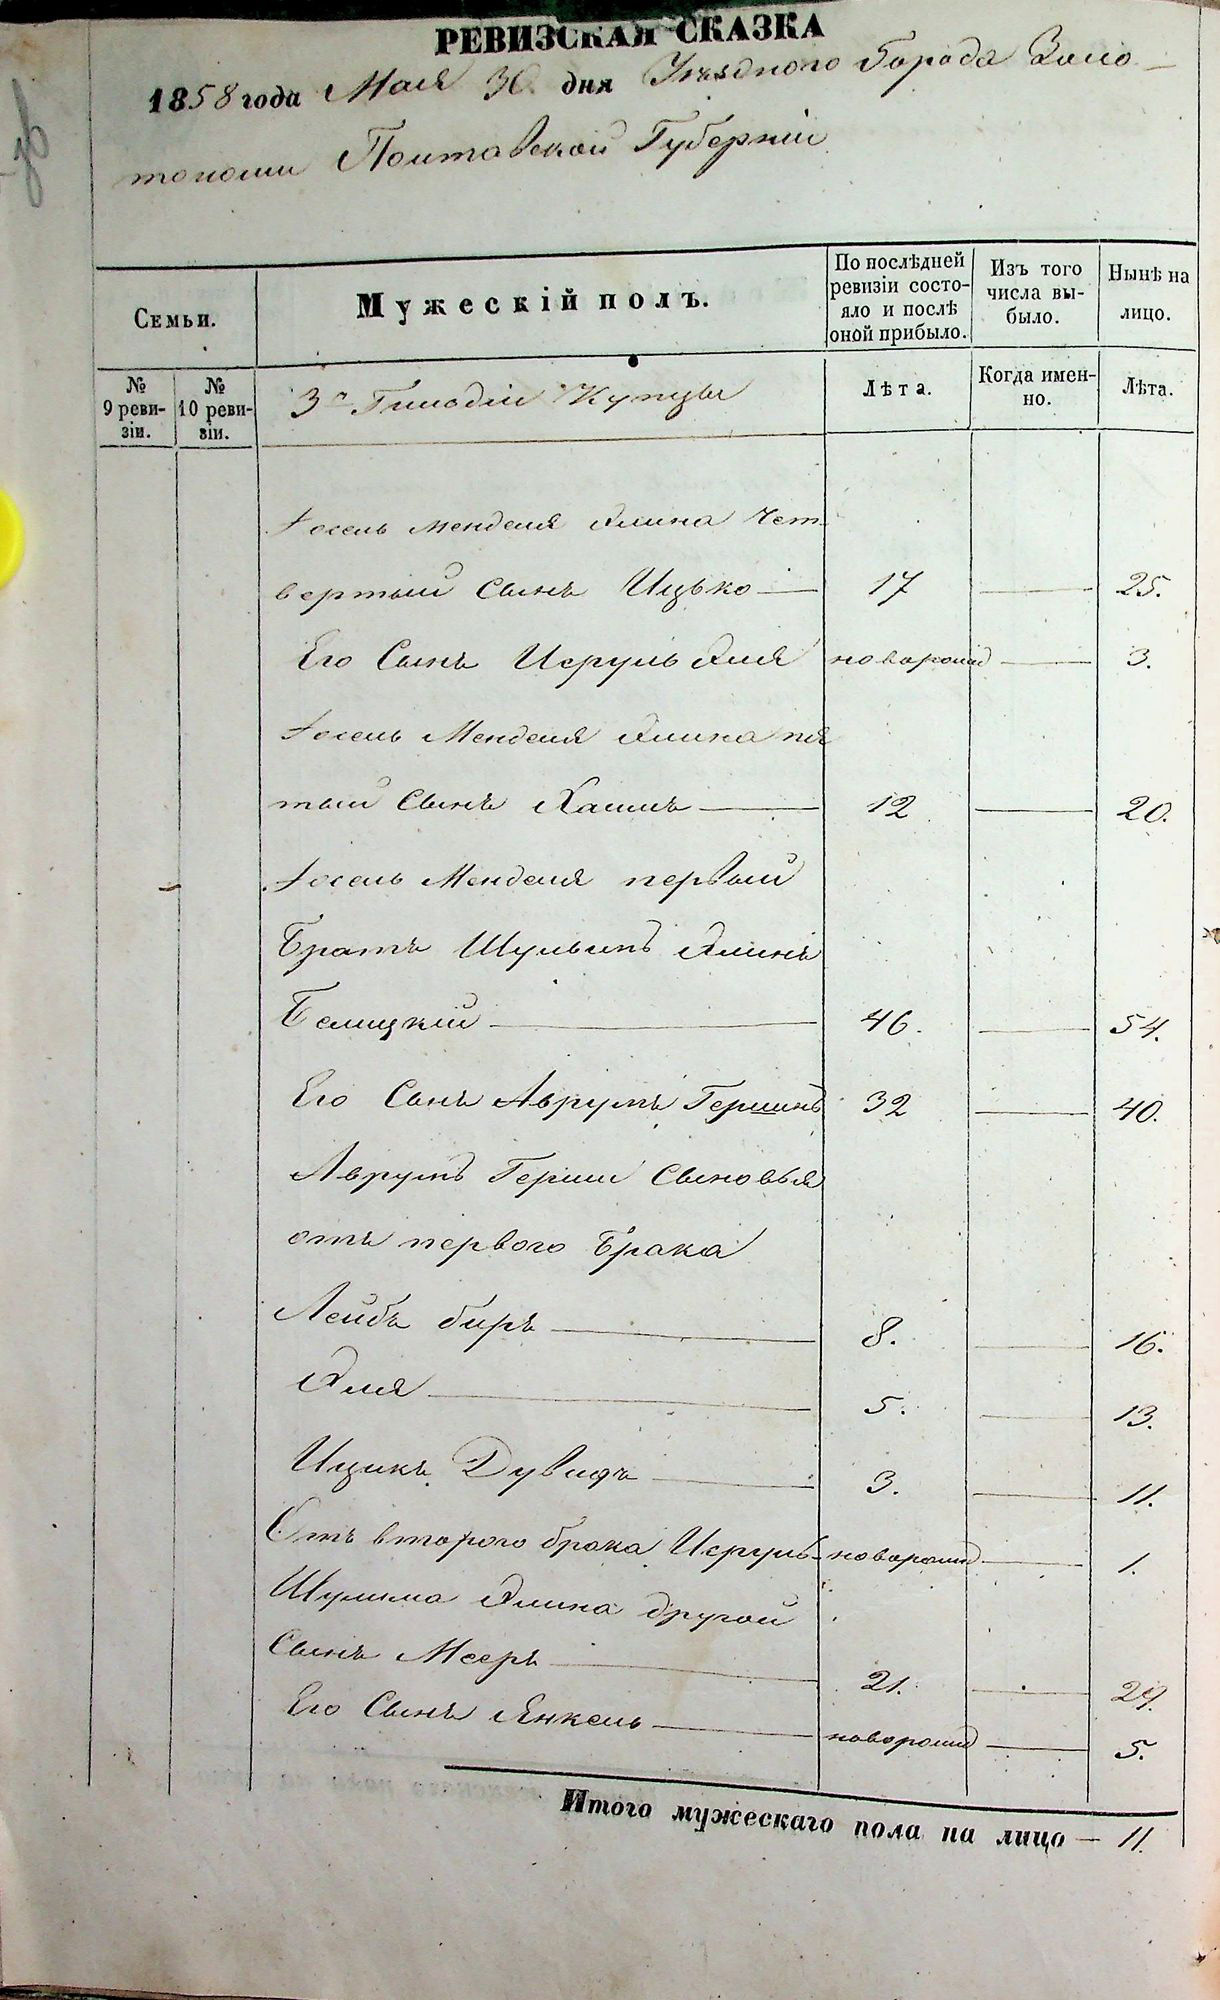 РЕВИЗСКАЯ СКАЗКА
1858 года Мая 30 дня Уѣзднаго Города Золо-
тоноши Полтавской Губерніи
Семьи.
Мужескій полъ.
По послѣдней ревизіи состояло и послѣ оной прибыло.
Изъ того числа выбыло.
Нынѣ на лицо.
№ 9 ревизіи.
№ 10 ревизіи.
3й Гильдіи Купцы
Лѣта.
Когда именно.
Лѣта.
Іосель Менделя Элина чет-
вертый Сынъ Ицько — 17 — 25.
Его Сынъ Исруль Эля новорожд — 3.
Іосель Менделя Элина пя
тый Сынъ Хаимъ — 12 — 20.
Іосель Менделя первый
Братъ Шулимъ Элинъ
Белицкій — 46. — 54.
Его Сынъ Аврумъ Гершинъ 32 — 40.
Аврумъ Герши Сыновья
отъ перваго Брака
Лейбъ биръ — 8. — 16.
Эля — 5. — 13.
Ицикъ Дувидъ — 3. — 11.
Отъ втораго брака Исруль - новорожд — 1.
Шулима Элина другой
Сынъ Мееръ — 21. — 29.
Его Сынъ Янкель — новорожд — 5.
Итого мужескаго пола на лицо — 11.